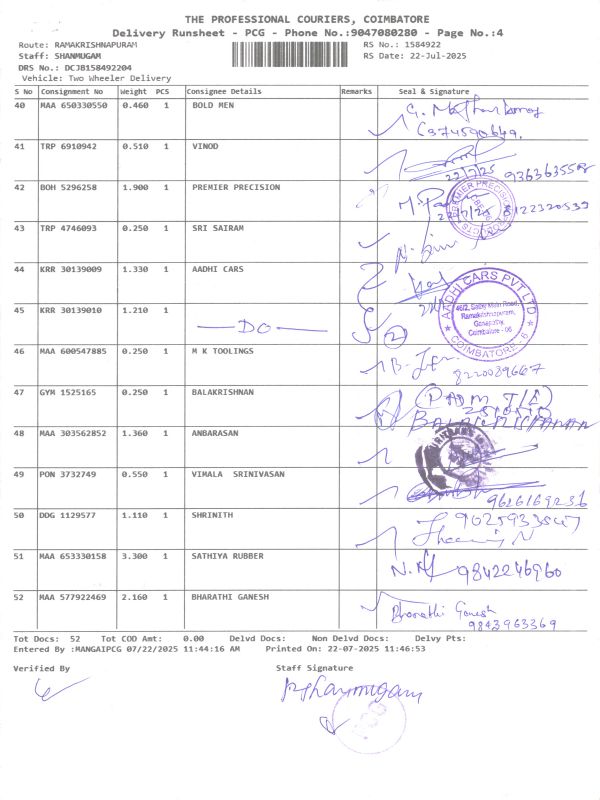 THE PROFESSIONAL COURIERS, COIMBATORE
Delivery Runsheet - PCG - Phone No.:9047080280 - Page No.:4
Route: RAMAKRISHNAPURAM
RS No.: 1584922
Staff: SHANMUGAM
RS Date: 22-Jul-2025
DRS No.: DCJB158492204
Vehicle: Two Wheeler Delivery
S No Consignment No Weight PCS Consignee Details Remarks Seal & Signature
40 MAA 650330550 0.460 1 BOLD MEN
41 TRP 6910942 0.510 1 VINOD
22/7/25 9363635598
42 BOH 5296258 1.900 1 PREMIER PRECISION
22/7/25 8122320539
43 TRP 4746093 0.250 1 SRI SAIRAM
44 KRR 30139009 1.330 1 AADHI CARS
AADHI CARS PVT LTD
Ramakrishnapuram,
Ganapathy,
Coimbatore - 06
COIMBATORE - 6
45 KRR 30139010 1.210 1
DO 2
46 MAA 600547885 0.250 1 M K TOOLINGS
8220089667
47 GYM 1525165 0.250 1 BALAKRISHNAN
BALAKRISHNAN
48 MAA 303562852 1.360 1 ANBARASAN
49 PON 3732749 0.550 1 VIMALA SRINIVASAN
9626169236
50 DDG 1129577 1.110 1 SHRINITH
9025933547
51 MAA 653330158 3.300 1 SATHIYA RUBBER
9842246960
52 MAA 577922469 2.160 1 BHARATHI GANESH
Bharathi Ganesh
9843963369
Tot Docs: 52 Tot COD Amt: 0.00 Delvd Docs: Non Delvd Docs: Delvy Pts:
Entered By :MANGAIPCG 07/22/2025 11:44:16 AM Printed On: 22-07-2025 11:46:53
Verified By Staff Signature
PCG